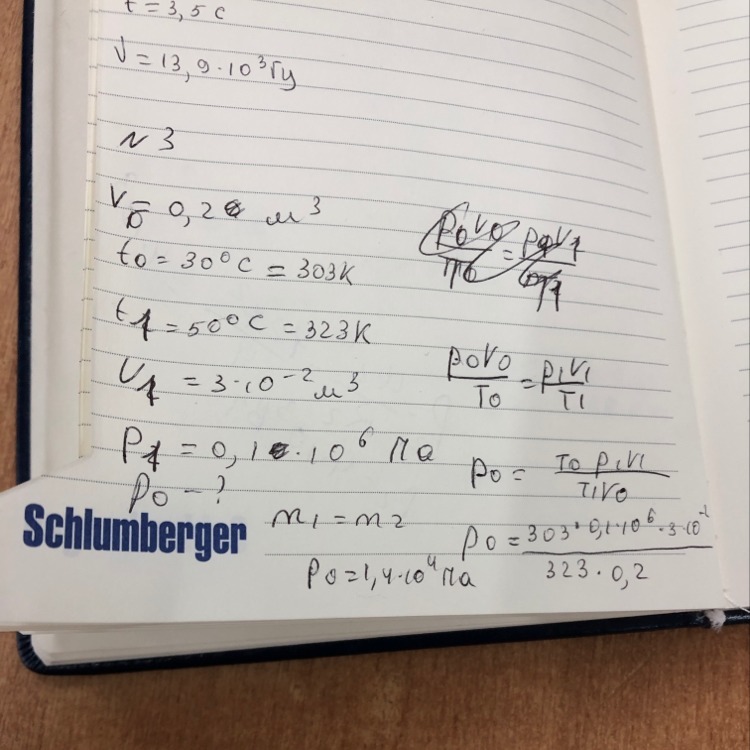 t = 3,5 с
ν = 13,9·10³Гц
N 3
V₀ = 0,2 м³
t₀ = 30°C = 303K
t₁ = 50°C = 323K
V₁ = 3·10⁻² м³
P₁ = 0,1·10⁶ Па
P₀ – ?
m₁ = m₂
P₀ = 1,4·10⁴ Па
P₀V₀/T₀ = P₁V₁/T₁
P₀ = T₀P₁V₁/T₁V₀
P₀ = 303·0,1·10⁶·3·10⁻²/323·0,2
Schlumberger